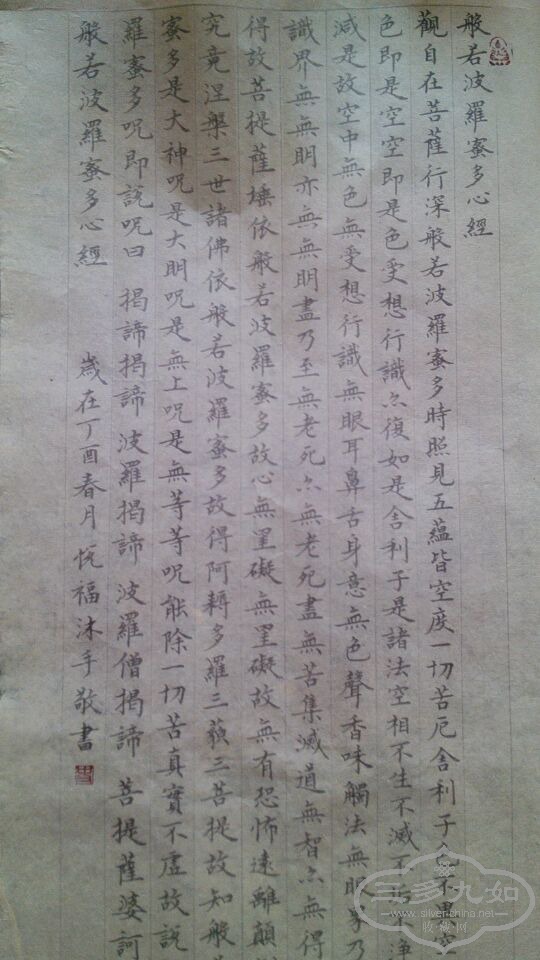 般若波羅蜜多心經
觀自在菩薩行深般若波羅蜜多時照見五蘊皆空度一切苦厄舍利子色不異空
色即是空空即是色受想行識亦復如是舍利子是諸法空相不生不滅不垢不淨
減是故空中無色無受想行識無眼耳鼻舌身意無色聲香味觸法無眼界乃
識界無無明亦無無明盡乃至無老死亦無老死盡無苦集滅道無智亦無得
得故菩提薩埵依般若波羅蜜多故心無罣礙無罣礙故無有恐怖遠離顛
究竟涅槃三世諸佛依般若波羅蜜多故得阿耨多羅三藐三菩提故知般
蜜多是大神呪是大明呪是無上呪是無等等呪能除一切苦真實不虛故說
羅蜜多呪即說呪曰 揭諦揭諦 波羅揭諦 波羅僧揭諦 菩提薩婆訶
般若波羅蜜多心經 歲在丁酉春月悦福沐手敬書
三多九如
www.silverchina.net
收藏网